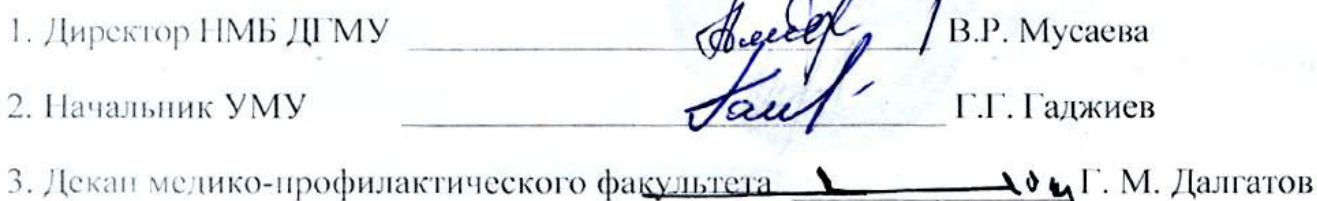 1. Директор НМБ ДГМУ В.Р. Мусаева
2. Начальник УМУ Г.Г. Гаджиев
3. Декан медико-профилактического факультета Г. М. Далгатов